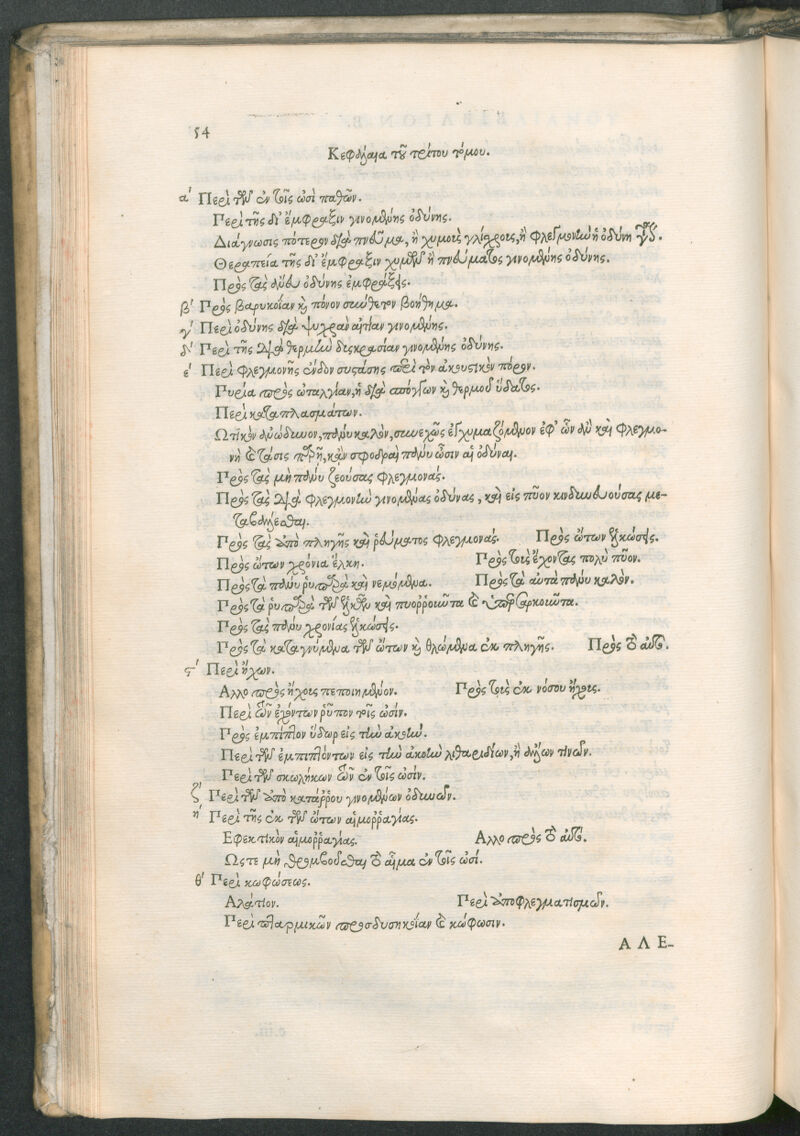 54
Κεφάλαια τοῦ τρίτου τόμου.
α΄ Περὶ τῶν ἐν τοῖς ὠσὶ παθῶν.
Περὶ τῆς δι' ἔμφραξιν γινομένης ὀδύνης.
Διάγνωσις πότερον διὰ πνεῦμα, ἢ χυμοὺς γλίχρους, ἢ φλεγμονὴν ἡ ὀδύνη
Θεραπεία τῆς δι' ἔμφραξιν χυμῶν ἢ πνεύματος γινομένης ὀδύνης.
Πρὸς τὰς ἄνευ ὀδύνης ἐμφράξεις.
β΄ Πρὸς βαρυκοΐαν καὶ πόνον σύνθετον βοήθημα.
γ΄ Περὶ ὀδύνης διὰ ψυχρὰν αἰτίαν γινομένης.
δ΄ Περὶ τῆς διὰ θερμὴν δυσκρασίαν γινομένης ὀδύνης.
ε΄ Περὶ φλεγμονῆς ἔνδον συστάσης περὶ τὸν ἀκουστικὸν πόρον.
Πυρία πρὸς ὠταλγίαν, ἡ διὰ σπόγγων καὶ θερμοῦ ὕδατος.
Περὶ καταπλασμάτων.
Ωτικὸν ἀνώδυνον, πάνυ καλὸν, συνεχῶς ἐγχυματιζόμενον ἐφ' ὧν ἂν καὶ φλεγμο-
νὴ καὶ τάσις παρῇ, κἂν σφοδραὶ πάνυ ὦσιν αἱ ὀδύναι.
Πρὸς τὰς μὴ πάνυ ζεούσας φλεγμονάς.
Πρὸς τὰς διὰ φλεγμονὴν γινομένας ὀδύνας, καὶ εἰς πῦον κινδυνευούσας με-
ταβάλλεσθαι.
Πρὸς τὰς ἀπὸ πληγῆς καὶ ῥεύματος φλεγμονάς. Πρὸς ὤτων ἑλκώσεις.
Πρὸς ὤτων χρόνια ἕλκη. Πρὸς τοὺς ἔχοντας πολὺ πῦον.
Πρὸς τὰ πάνυ ῥυπαρὰ καὶ νεμόμενα. Πρὸς τὰ αὐτὰ πάνυ καλόν.
Πρὸς τὰ ῥυπαρὰ τῶν ἑλκῶν καὶ πυορροιοῦντα καὶ ὑπερσαρκοῦντα.
Πρὸς τὰς πάνυ χρονίας ἑλκώσεις.
Πρὸς τὰ καταγνύμενα τῶν ὤτων καὶ θλώμενα ἐκ πληγῆς. Πρὸς τὸ αὐτό.
ϛ΄ Περὶ ἤχων.
Αλλο πρὸς ἤχους πεποιημένον. Πρὸς τοὺς ἐκ νόσου ἤχους.
Περὶ τῶν ἐχόντων ῥύπον τοῖς ὠσίν.
Πρὸς ἐμπῖπλον ὕδωρ εἰς τὴν ἀκοήν.
Περὶ τῶν ἐμπιπτόντων εἰς τὴν ἀκοὴν λιθαριδίων, ἢ ἄλλων τινῶν.
Περὶ τῶν σκωλήκων τῶν ἐν τοῖς ὠσίν.
ζ΄ Περὶ τῶν ἀπὸ κατάρρου γινομένων ὀδυνῶν.
η΄ Περὶ τῆς ἐκ τῶν ὤτων αἱμορραγίας.
Εφεκτικὸν αἱμορραγίας. Αλλο πρὸς τὸ αὐτό.
Ωςτε μὴ θρομβοῦσθαι τὸ αἷμα ἐν τοῖς ὠσί.
θ΄ Περὶ κωφώσεως.
Αλάτιον. Περὶ ἀποφλεγματισμῶν.
Περὶ πταρμικῶν πρὸς δυσηκοΐαν καὶ κώφωσιν.
Α Λ Ε-